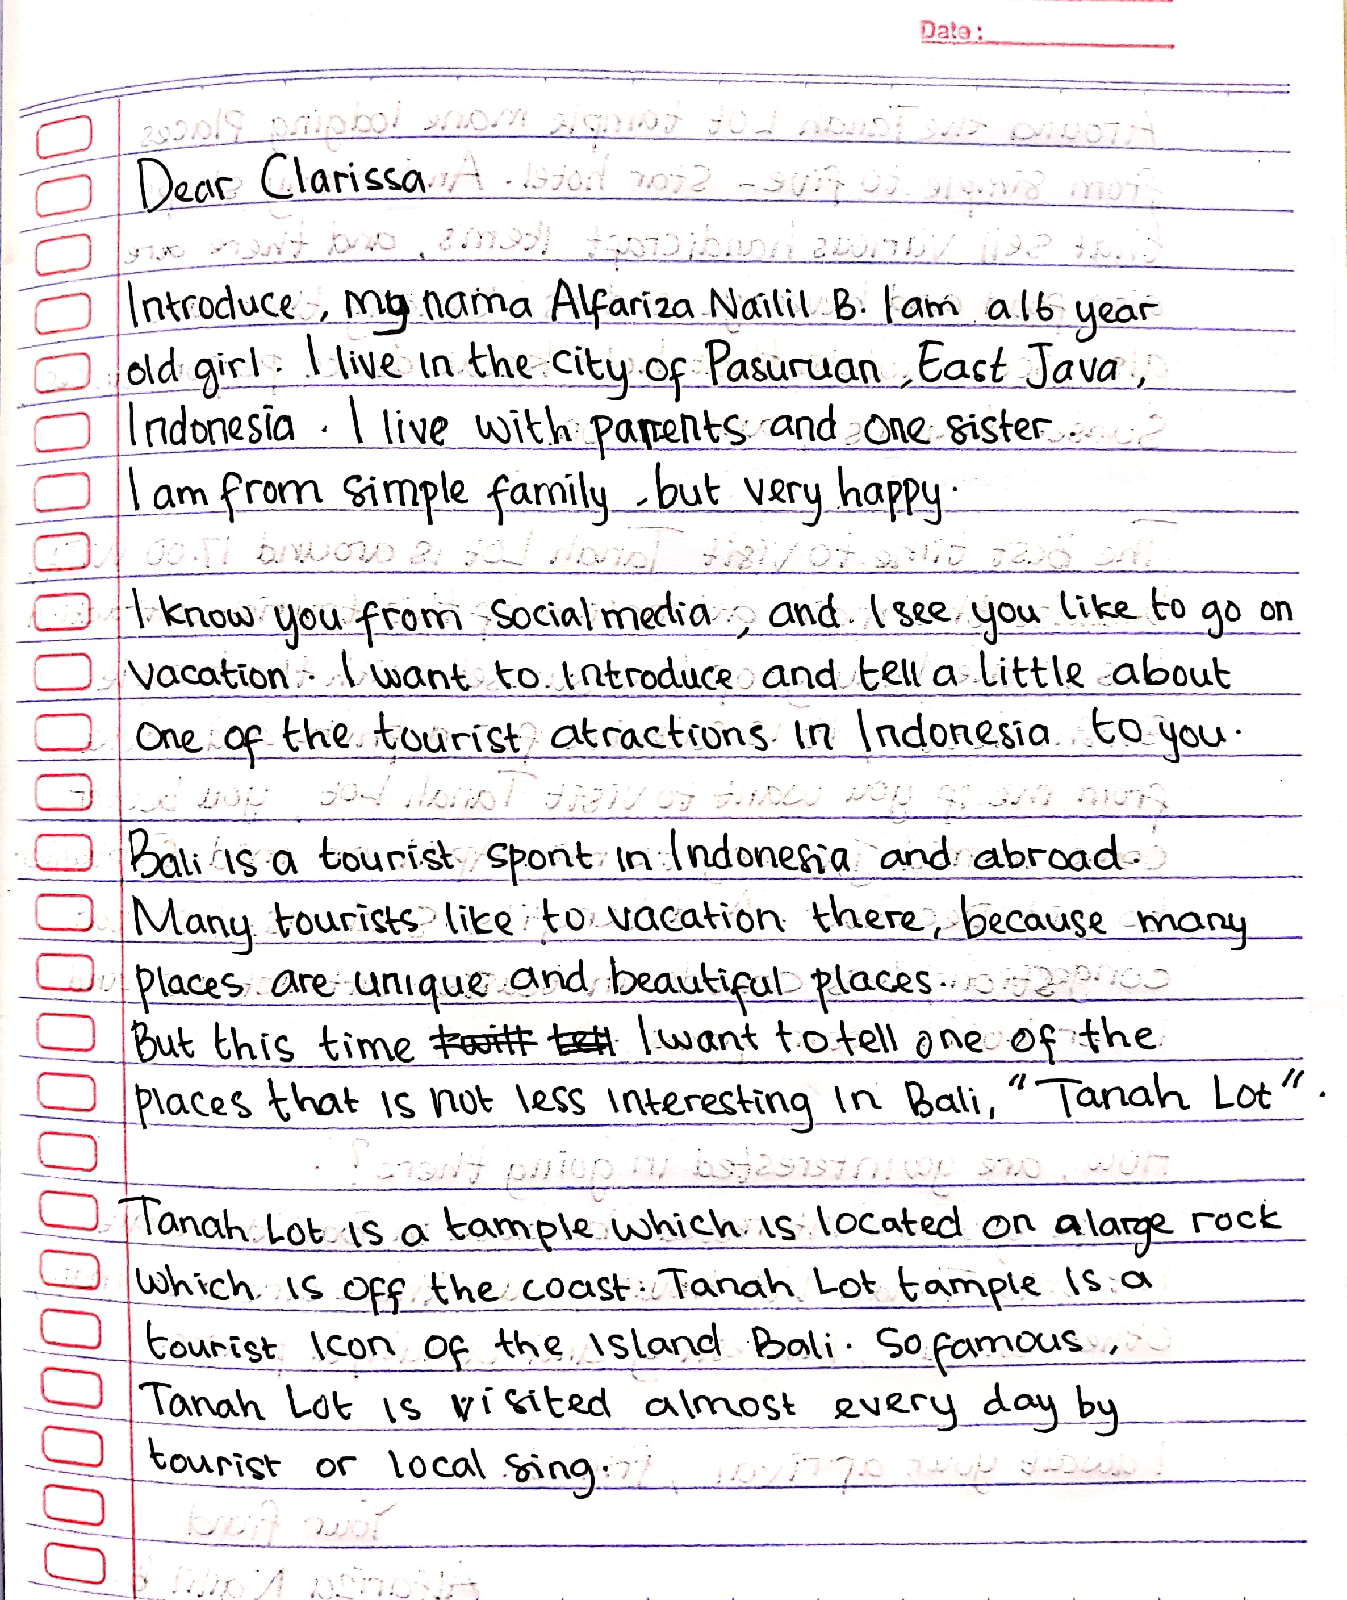 Date:
Dear Clarissa
Introduce, my nama Alfariza Nailil B. I am a 16 year
old girl. I live in the city of Pasuruan, East Java,
Indonesia. I live with parents and one sister.
I am from simple family, but very happy.
I know you from social media, and I see you like to go on
vacation. I want to introduce and tell a little about
one of the tourist atractions in Indonesia to you.
Bali is a tourist spont in Indonesia and abroad.
Many tourists like to vacation there, because many
places are unique and beautiful places.
But this time I want to tell one of the
places that is not less interesting in Bali, "Tanah Lot".
Tanah Lot is a tample which is located on a large rock
which is off the coast. Tanah Lot tample is a
tourist Icon of the island Bali. So famous,
Tanah Lot is visited almost every day by
tourist or local sing.